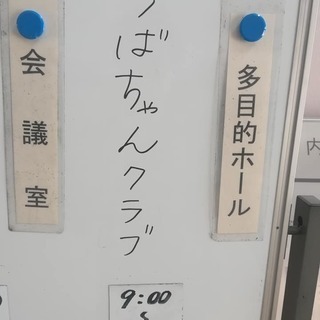 多目的ホール
ばちゃんクラブ
9:00
会議室
内